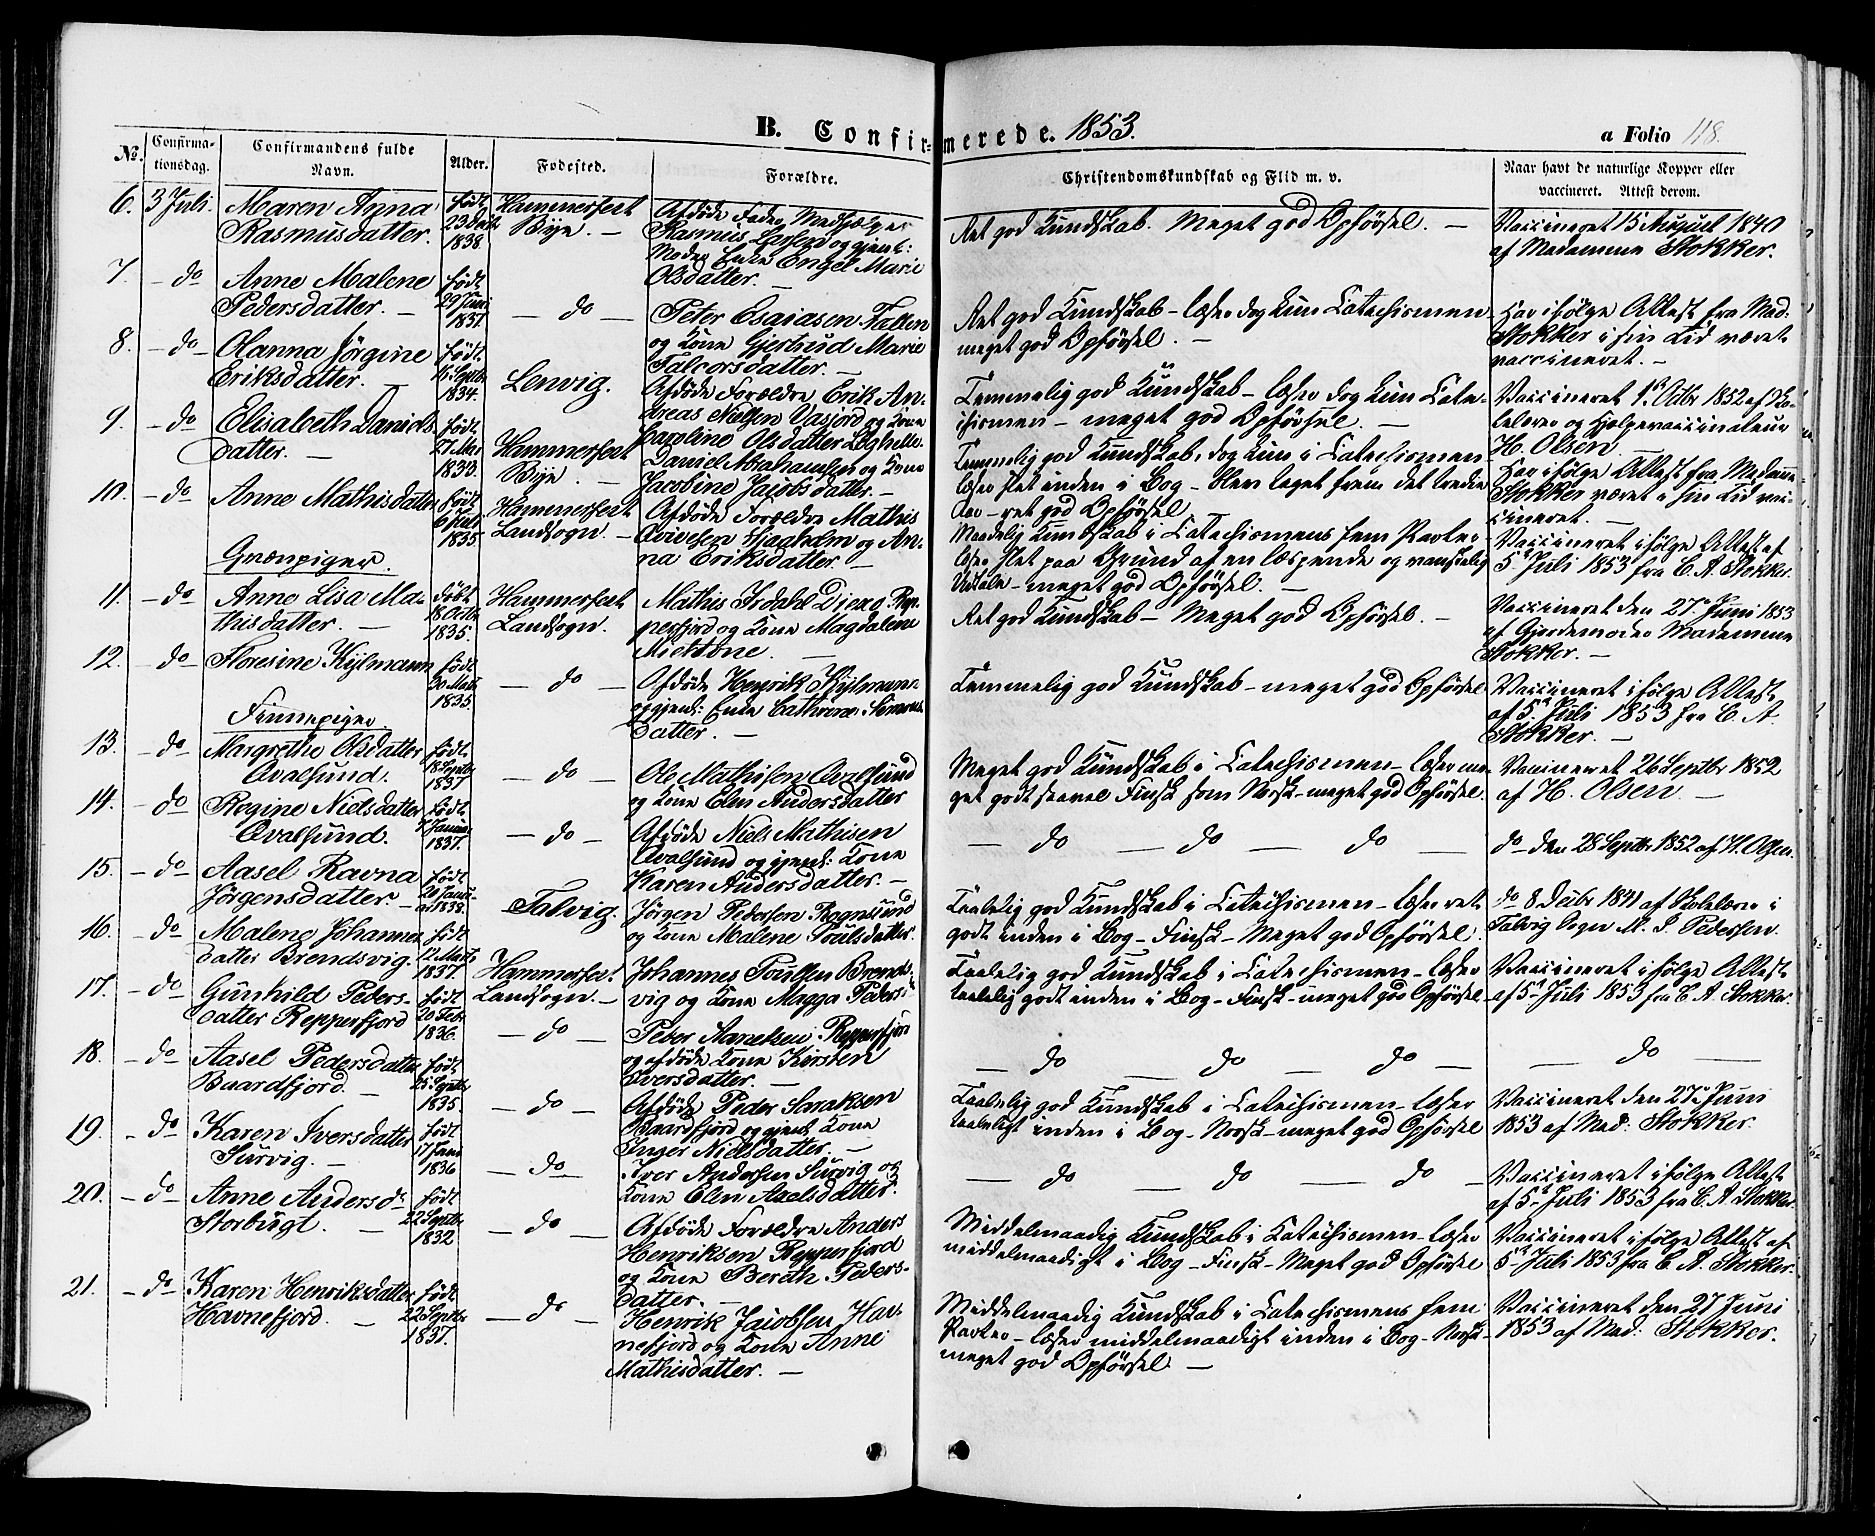 B. Confirmerede. 1853.
a Folio 118.
No.
Confirmationsdag.
Confirmandens fulde Navn.
Alder.
Fødested.
Forældre.
Christendomskundskab og Flid m. v.
Naar havt de naturlige Kopper eller vaccineret. Attest derom.
6. 3 Juli. Maren Anna
Rasmusdatter.
født 23
1838.
Hammerfest
Bye. —
Afdøde Fader
Rasmus Larsen og gjenl:
Moder Enke Engel Marie
Olsdatter. —
Ret god Kundskab. Meget god Opførsel. —
Vaccineret 15 August 1840
af Madamme Stokker.
7. — do Anne Malene
Pedersdatter. —
født
29 Juni
1837
— do —
Peter Esaiasen
og Kone Gjertrud Marie
Falcorsdatter. —
Ret god Kundskab — læser dog kun Catechismen
meget god Opførsel. —
Har ifølge Attest fra Mad:
Stokker i sin Tid været
vaccineret. —
8. — do — Olanna Jørgine
Eriksdatter. —
født
15 Septbr
1834.
Lenvig.
Afdøde Forældre Erik An-
dreas Nilsen og Kone
Olsdatter
Temmelig god Kundskab — læser dog kun Cate-
chismen — meget god Opførsel. —
Vaccineret 1ste Octbr 1852 af Sko-
lelærer og Hjælpevaccinateur
H. Olsen
9. — do Elisabeth Daniels-
datter. —
født
27 Mai
1833.
Hammerfest
Bye. —
Daniel Abrahamsen og Kone
Jacobine Jacobsdatter. —
Temmelig god Kundskab, dog kun i Catechismen
læser slet inden i Bog — blev taget frem det tredie
Aar — ret god Opførsel.
Har ifølge Attest fra Madamme
Stokker været i sin Tid vac-
cineret. —
10. — do Anne Mathisdatter
født
6 Juli
1835.
Hammerfest
Landsogn. —
Afdøde Forældre Mathis
og An-
na Eriksdatter. —
Maadelig Kundskab i Catechismens fem Parter
læser slet paa Grund af en læspende og vanskelig
Udtale — meget god Opførsel. —
Vaccineret ifølge Attest af
5te Juli 1853 fra C. A. Stokker.
Qvænpiger.
11. — do — Anne Lisa Ma-
thisdatter. —
Døbt
18 Octbr
1835.
Hammerfest
Landsogn.
Mathis Rep-
perfjord og Kone Magdalene
—
Ret god Kundskab — Meget god Opførsel. —
Vaccineret den 27. Juni 1853
af Gjordemoder Madamme
Stokker. —
12. — do — Floresine Kylmann
født
30
1835.
— do —
Afdøde Henrik Kylmann
og gjenl: Enke Cathrine Simons-
datter. —
Temmelig god Kundskab — meget god Opførsel
Vaccineret ifølge Attest
af 5te Juli 1853 fra C. A.
Stokker. —
Finnepiger
13. — do — Margrethe Olsdatter
Qvalsund.
født
18 Septbr
1837
— do —
Ole Mathisen Qvalsund
og Kone Elen Andersdatter
Meget god Kundskab i Catechismen — læser me-
get godt saavel Finsk som Norsk — meget god Opførsel.
Vaccineret 26 Septbr 1852
af H. Olsen —
14. — do Regine Nielsdatter
Qvalsund.
født
Januar
1837.
— do —
Afdøde Niels Mathisen
Qvalsund og gjenl: Kone
Karen Andersdatter. —
— do — do — do —
do den 28 Septbr 1852 af H. Olsen.
15. — do Aasel Ravna
Jørgensdatter. —
født
20 Janu-
ar 1838.
Talvig.
Jørgen Pedersen Rognsund
og Kone Malene Poulsdatter.
Taalelig god Kundskab i Catechismen — læser ret
godt inden i Bog — Finsk — Meget god Opførsel.
do 8. Decbr 1841 af Skolelærer i
Talvig Sogn M. J. Pedersen.
16. — do Malene Johannes-
datter Brendsvig.
født
12 Marts
1837.
Hammerfest
Landsogn. —
Johannes Poulsen Brends-
vig og Kone Magga Peders
Taalelig god Kundskab i Catechismen — læser
taalelig godt inden i Bog — Finsk — meget god Opførsel
Vaccineret ifølge Attest
af 5te Juli 1853 fra C. A. Stokker.
17. — do Gunhild Peders-
datter Repperfjord
født
20 Febr
1836.
— do —
Peder Repperfjord
og afdøde Kone Kirsten
Iversdatter. —
— do — do — do —
— do —
18. — do — Aasel Pedersdatter
Baardfjord. —
født
25 Septbr
1835.
— do —
Afdøde Peder Saraksen
Baardfjord og gjenl: Kone
Inger Nielsdatter. —
Taalelig god Kundskab i Catechismen — læser
taaleligt inden i Bog — Norsk — meget god Opførsel
Vaccineret den 27de Juni
1853 af Mad: Stokker.
19. — do Karen Iversdatter
Survig. —
født
17 Juni
1836
— do —
Iver Andersen Survig og
Kone Elen Axelsdatter.
— do — do — do —
Vaccineret ifølge Attest
af 5te Juli 1853 fra C. A. Stokker.
20. — do Anne Andersdr
Storbugt. —
født
22 Septbr
1832
— do —
Afdøde Forældre Anders
Henriksen Repperfjord
og Kone Bereth Peders-
datter. —
Middelmaadig Kundskab i Catechismen — læser
middelmaadigt i Bog — Finsk — Meget god Opførsel
Vaccineret ifølge Attest af
5te Juli 1853 fra C. A. Stokker.
21. — do — Karen Henriksdatter
Havnefjord. —
født
22 Septbr
1837.
— do —
Henrik Jacobsen Hav-
nefjord og Kone Anne
Mathisdatter. —
Middelmaadig Kundskab i Catechismens fem
Parter — læser middelmaadigt inden i Bog — Norsk —
meget god Opførsel. —
Vaccineret den 27 Juni
1853 af Mad: Stokker.